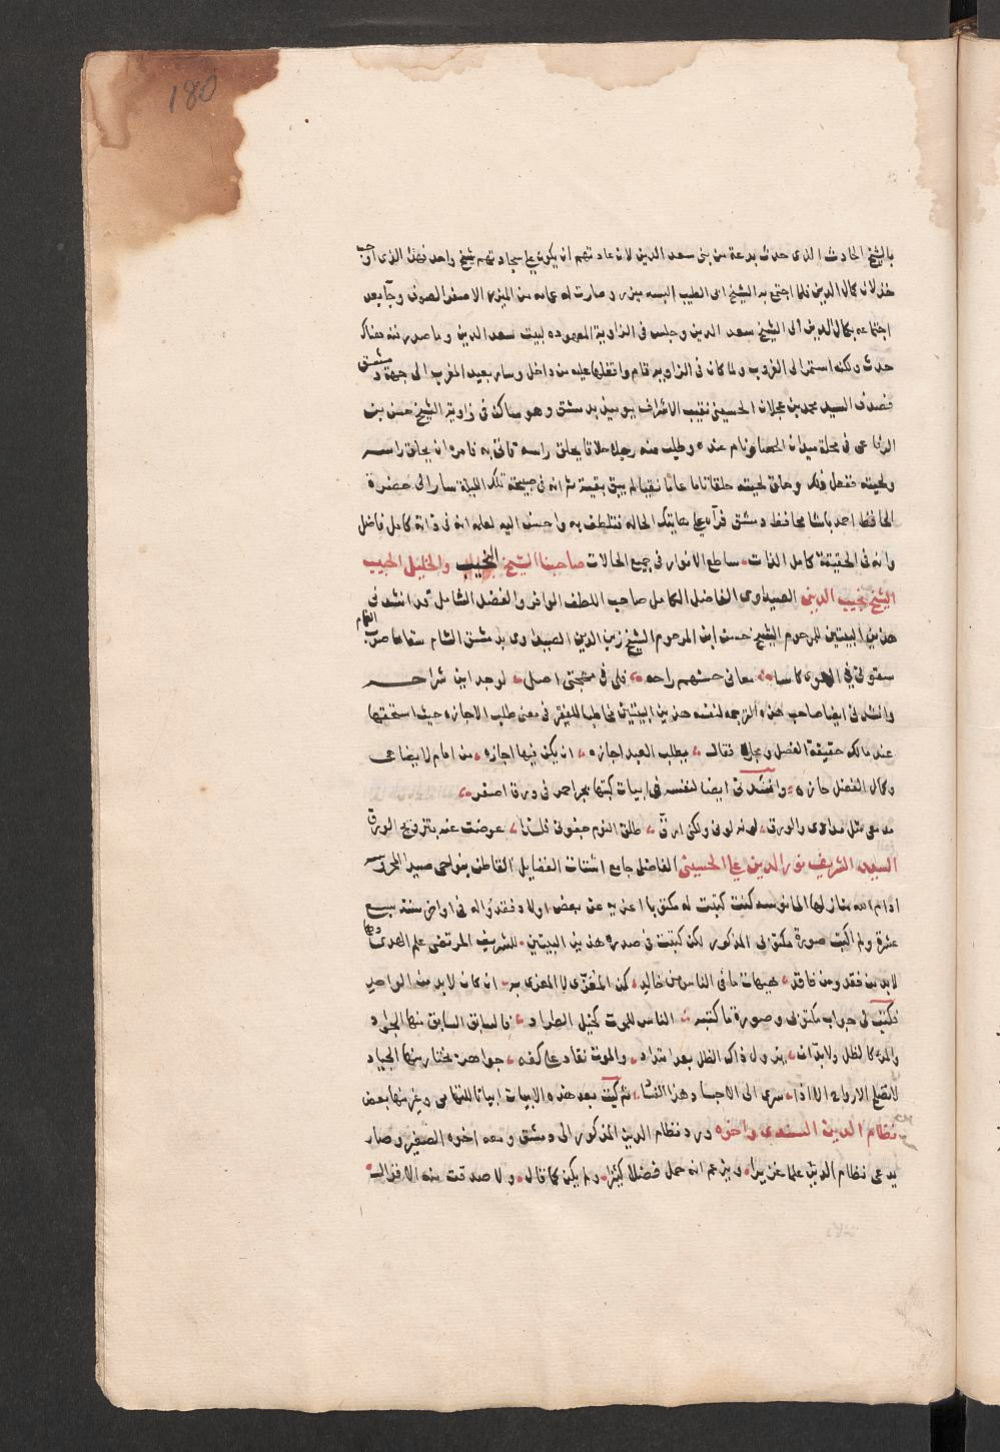 180
بالشيخ الحادث الذى حدث بدعة من بنى سعد الدين لان عادتهم ان يكون على سجادتهم شيخ واحد فهذا الذى اوجب
خذلان كمال الدين فلما اجتمع به الشيخ ابى الطيب البسه ميزره وصارت له عمامه من الميزر الاصفر الصوف وجآ بعد
اجتماعه بكمال الدين الى الشيخ سعد الدين وجلس فى الزاوية المعهوده لبيت سعد الدين وما صدر منه هناك
حدث ولكنه استمر الى الغروب ولما كان فى الزاويه قام واقفلها عليه من داخل وسار بعيد المغرب الى جهة دمشق
فصدف السيد محمد بن عجلان الحسينى نقيب الاشراف يوميذ بدمشق وهو ساكن فى زاوية الشيخ حسن بن
الرفاعى فى محلة ميدان الحصا ونام عنده وطلب منه رجلا حلاقا يحلق راسه فاتى به فامره ان يحلق راسه
ولحيته ففعل ذلك وحلق لحيته حلقا تاما عاما نقيا لم يبق بقية ثم انه فى صبيحة تلك الليلة سار الى حضرة
الحافظ احمد باشا محافظ دمشق فرآه على هاتيك الحاله فتلطف به واحسن اليه لعلمه انه فى ذاته كامل فاضل
وانه فى الحقيقة كامل الذات ساطع الانوار فى جميع الحالات صاحبنا الشيخ النجيب والخليل الحبيب
الشيخ نجيب الدين الصيداوى الفاضل الكامل صاحب اللطف الوافر والفضل الشامل قد انشدنى
هذين البيتين للمرحوم الشيخ حسن ابن المرحوم الشيخ زين الدين الصيداوى بدمشق الشام سقاها صوب الغمام
سقونى فى الهوى كاسا معانى حسنهم راحه فلى فى مهجتى اصل لوجد ابن شراحه
وانشدنى ايضا صاحب هذه الترجمه لنفسه هذين البيتين مخاطبا للفقير فى معنى طلب الاجازه حيث استحقها
عند مالك حقيقة الفضل ومجازه فقال يطلب العبد اجازه ان يكن فيها اجازه من امام لا يضاهى
وكمال الفضل حازه وانشدنى ايضا لنفسه فى ابيات كتبها بحبر احمر فى ورق اصفر
مدمعى مثل مدادى والورق لونه لونى ولكنى ارق طلق النوم جفونى فلذا عوضت عنه بتزويج الورق
السيد الشريف نور الدين على الحسينى الفاضل جامع اشتات الفضايل القاطن بنواحى صيدا المحروسه
ادام الله منازلها المانوسه كنت كتبت له مكتوبا اعزيه عن بعض اولاد فقدواله فى اواخر سنة سبع
عشرة ولم اكتب صورة مكتوبى المذكور لكن كتبت فى صدره هذين البيتين للشريف المرتضى علم الهدى وهما
لا بد من فقد ومن فاقد هيهات ما فى الناس من خالد كن المعزّى لا المعزى به ان كان لا بد من الواحد
فكتب لى جواب مكتوبى وصورة ما كتبه الناس للموت كخيل الطراد فالسابق السابق منها الجواد
والمرء كالظل ولا بدّ ان يزول ذاك الظل بعد امتداد والموت نقاد على كفه جواهر يختار منها الجياد
لا تصلح الارواح الا اذا سرى الى الاجساد هذا الفساد ثم كتب بعد هذه الابيات ابياتا للتهامى وغيرها بعض
نظام الدين السندى واخوه ورد نظام الدين المذكور الى دمشق ومعه اخوه الصغير وصار
يدعى نظام الدين علما غزيرا ويزعم انه حمل فضلا كثيرا ولم يكن كما قال ولا صدقت منه الاقوال